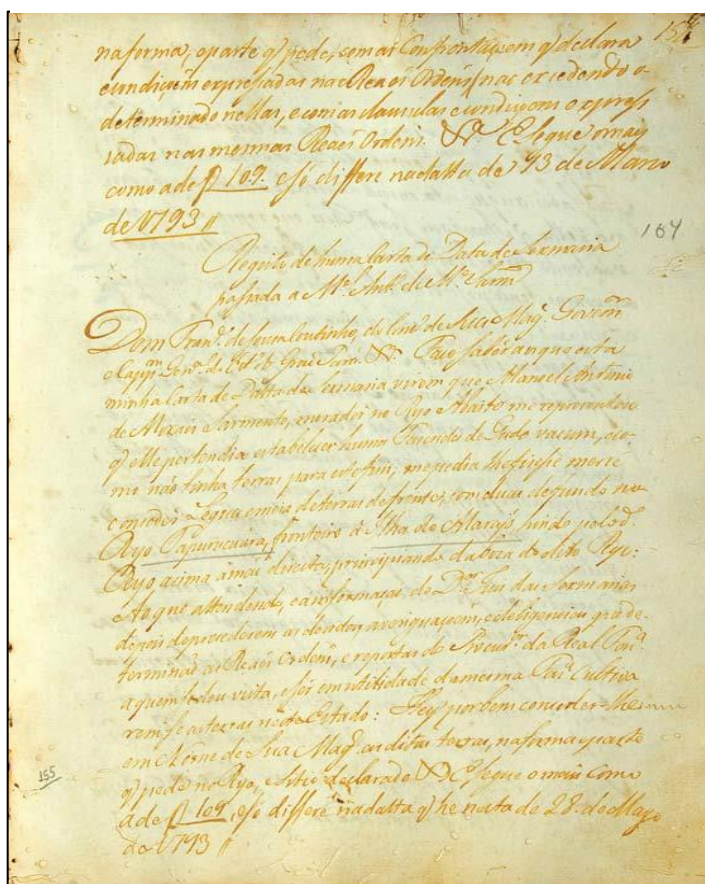 154
na forma, e parte q' pede, com as Confrontaçoens q' declara
condiçoens expressadas nas Reaes Ordens, nao excedendo o
determinado nellas, e com as clausulas e condiçoens expres
sadas nas mesmas Reaes Ordens. &ª E segue o mais
como a de f 109. e só differe na datta de 13 de Março
de 1793 //
104
Registo de huma Carta de Data de Sesmaria
passada a Mel. Antº. de Mes. Sarmtº
Dom Franco. de Souza Coutinho, do Conso. de Sua Mag. Govern
e Cappm. Genal. do Estº do Grão Pará &ª Faço saber aos que esta
minha Carta de Datta de Sesmaria virem que Manoel Antonio
de Moraes Sarmento, morador no Ryo Majto me reprezentou
q' elle pertendia estabelecer huma Fazenda de Gado vacum, e co-
mo não tinha terras para este fim; me pedia lhe fizesse merce
conceder Legua e meia de terras de frente, com duas de fundo no
Ryo Papurucuara, fronteiro á Ilha do Marajó, hindo pelo d.
Ryo acima á mao direita, principiando da boca do dito Ryo:
Ao que attendendo, e a informaçao do Dor. Juiz das Sesmarias
depois de procederem as devidas averiguaçoens, e deligencias q' de-
terminao as Reaes Ordens, e reposta do Procur. da Real Fazª.
a quem se deu vista, e ser em utilidade da mesma Fazª. Cultiva
remse as terras neste Estado: Hey por bem conceder-lhe
em Nome de Sua Mag. as ditas terras, na forma e parte
q' pede no Ryo, e Sitio declarado &ª E segue o mais como
155
a de f 109. e só differe na datta q' he nesta de 28 de Mayo
de 1793 //